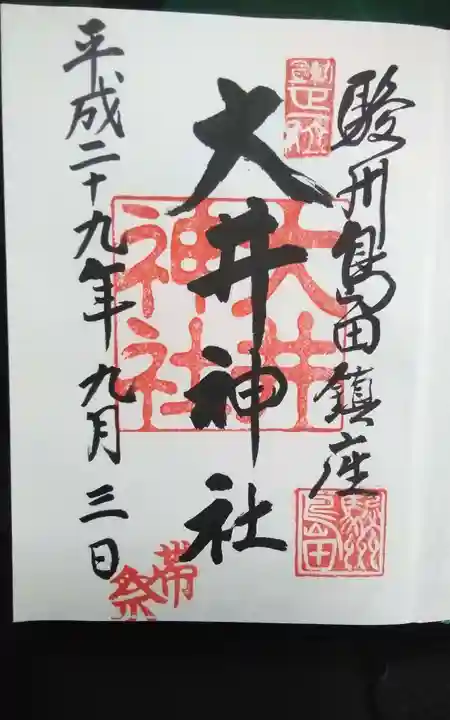 駿州島田鎮座
大井神社
平成二十九年九月三日
大井
神社
駿州
島田
帯
祭